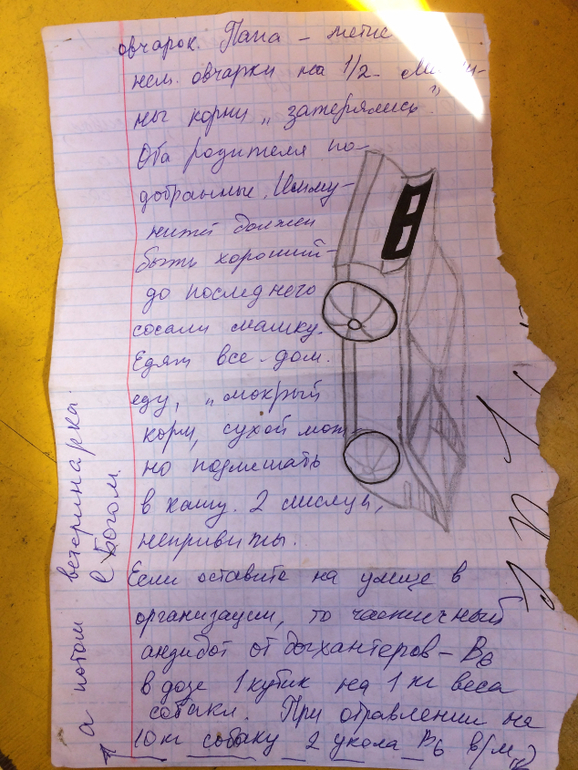 овчарок. Папа – метис
нем. овчарки на 1/2.
ны корни „ затерялись".
Оба родителя по-
добранные. Имму-
нитет должен
быть хороший –
до последнего
сосали мамку.
Едят все – дом.
еду, „мокрый
корм, сухой мож
но подмешать
в кашу. 2 месяца,
непривиты.
Если оставите на улице в
организации, то частичный
андидот от догхантеров – В6
в дозе 1 кубик на 1 кг веса
собаки. При отравлении на
10 кг собаку 2 укола В6 в/м
а потом ветеринарка
с Богом.